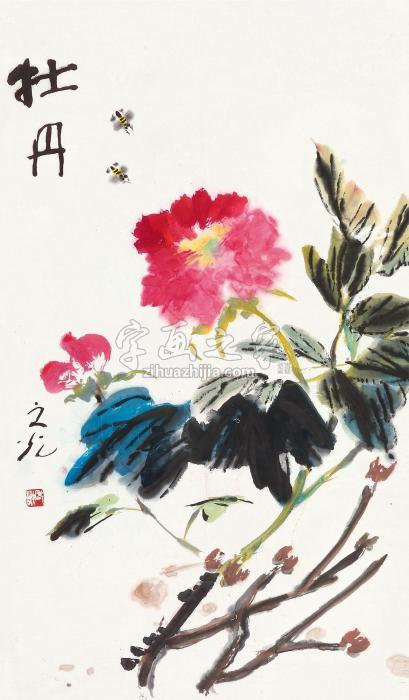 牡丹
字画之家
zihuazhijia.com